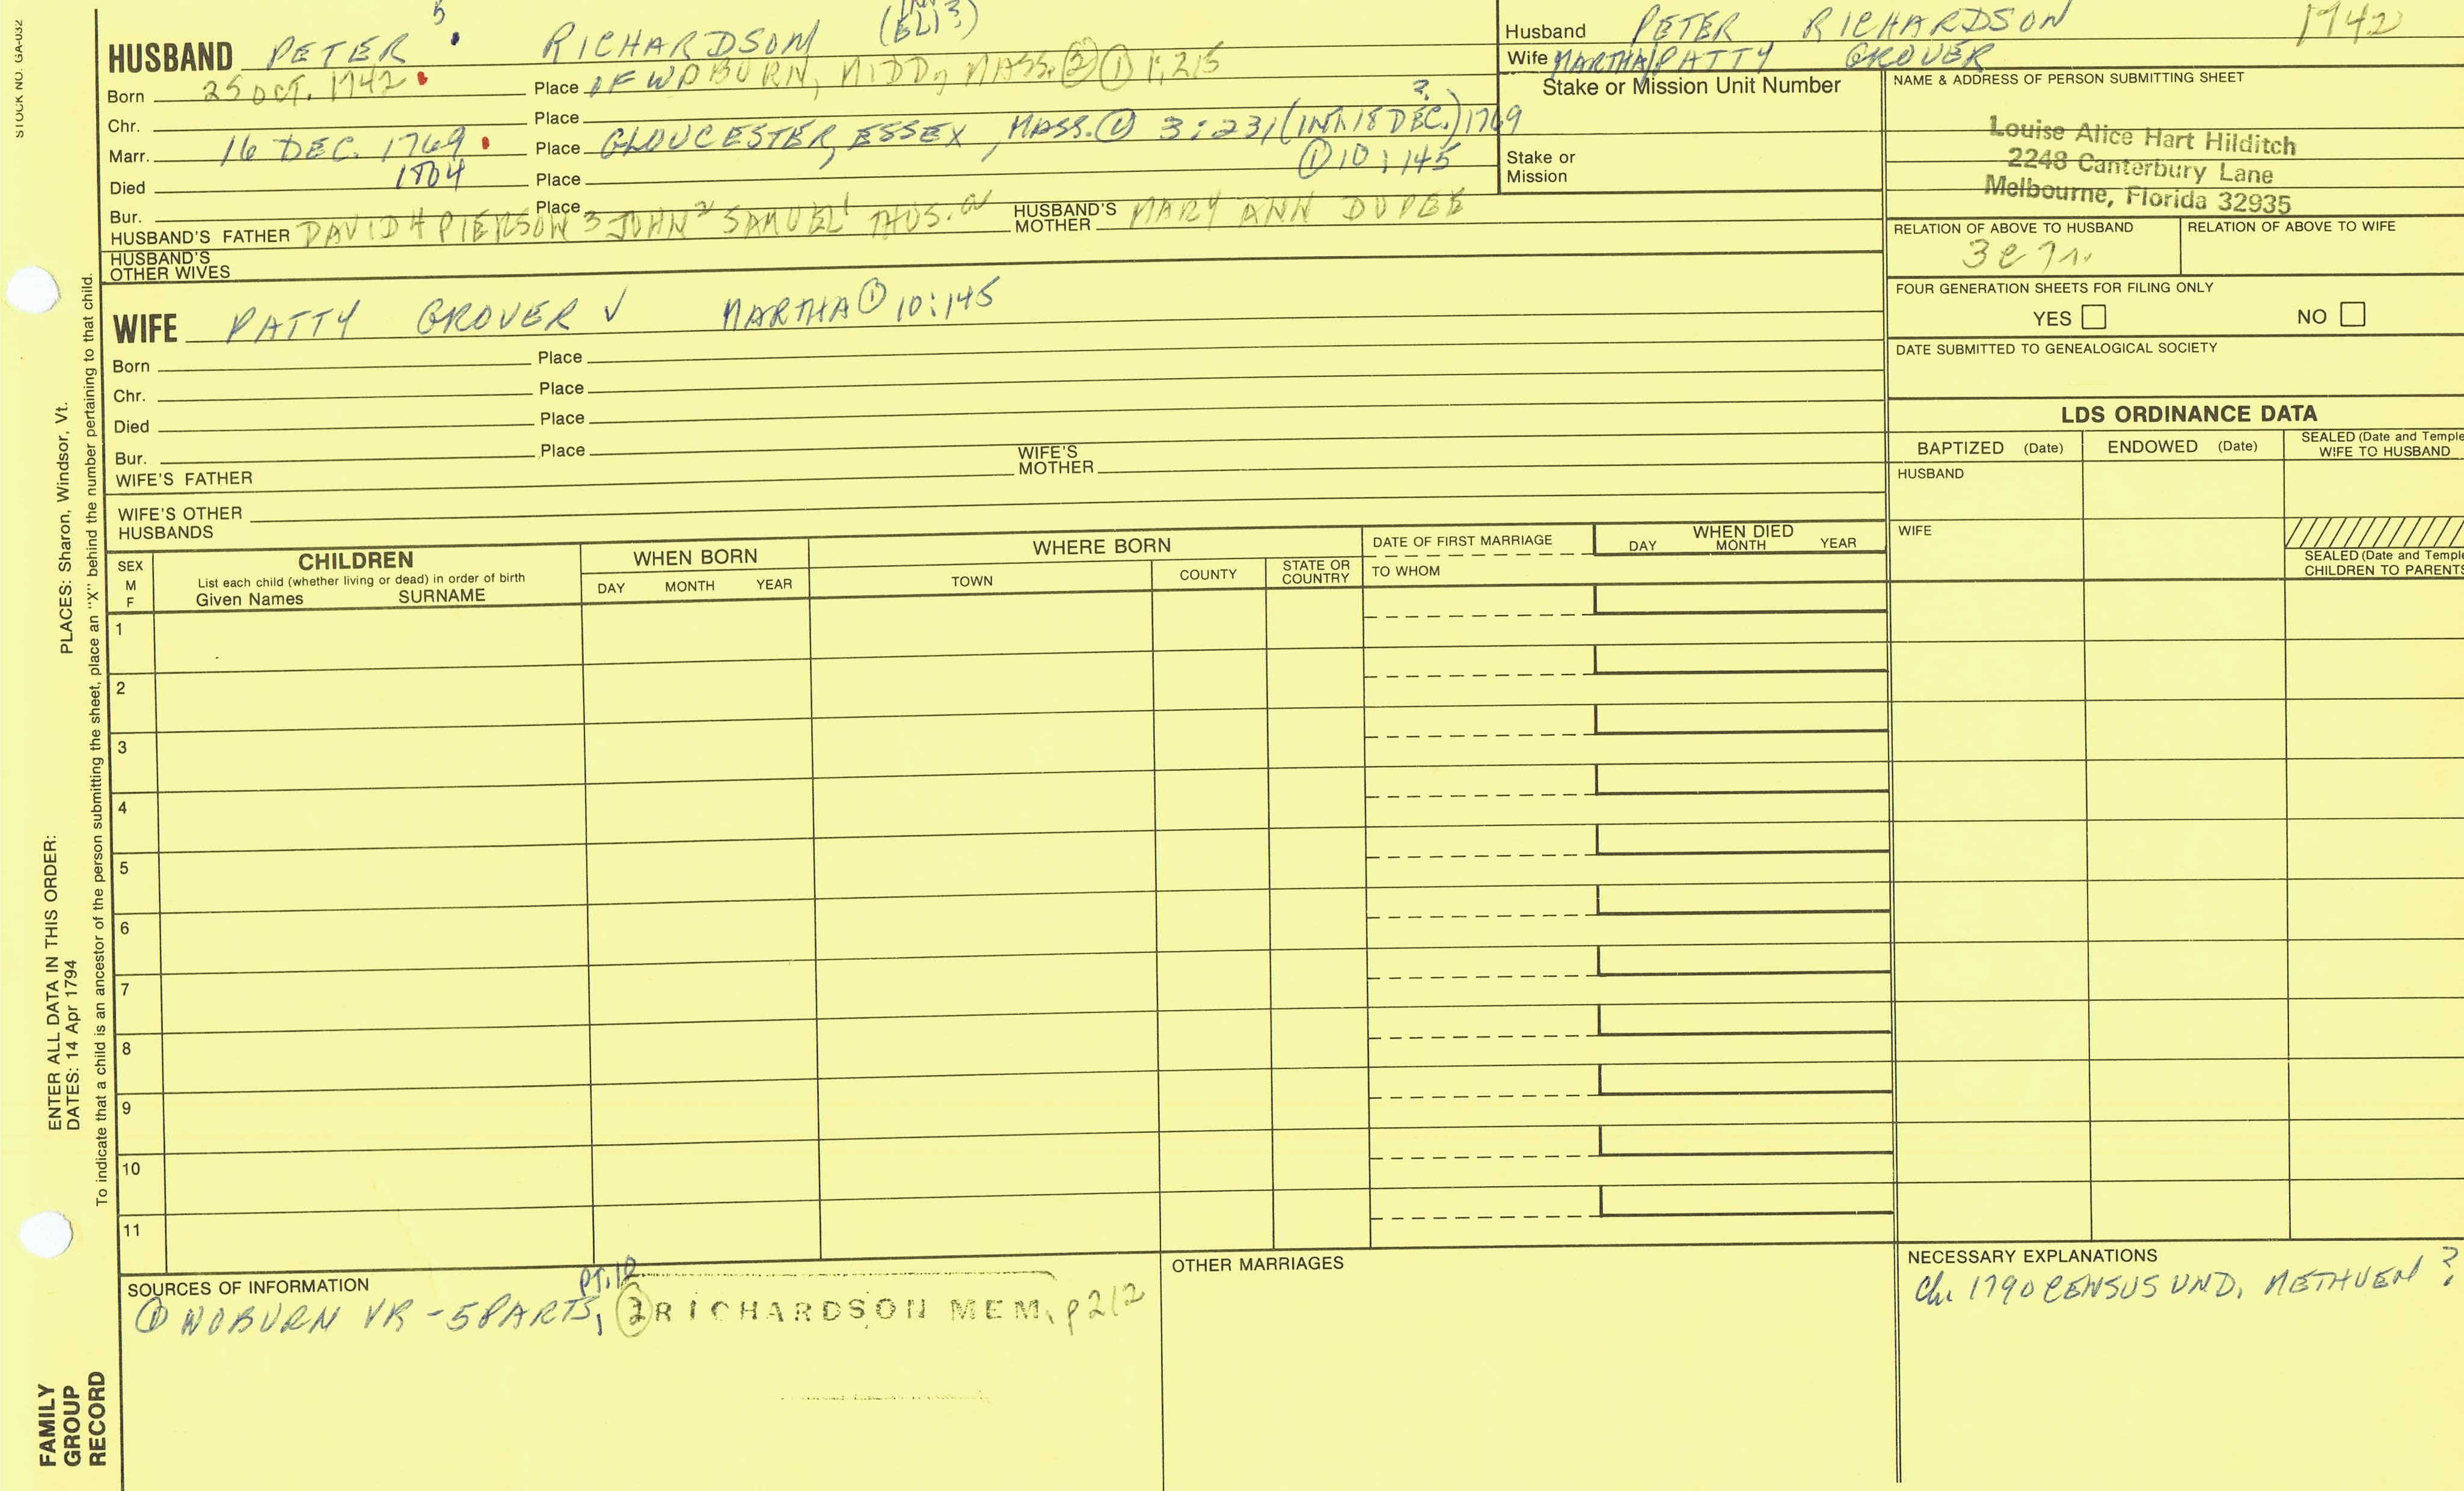 STOCK NO. GA-032
5 (ELI?)
HUSBAND PETER RICHARDSON
Born 25 OCT. 1742 Place OF WOBURN, MIDD, MASS. ② ① 1:215
Chr. Place
Marr. 16 DEC. 1769 Place GLOUCESTER, ESSEX, MASS. ① 3:231 (INT. 18 DEC.?) 1769
Died 1804 Place ① 10:145
Bur. Place
HUSBAND'S FATHER DAVID 4 PIERSON 3 JOHN 2 SAMUEL 1 THOS. a HUSBAND'S MOTHER MARY ANN DUPEE
HUSBAND'S OTHER WIVES
WIFE PATTY GROVER ✓ MARTHA ① 10:145
Born Place
Chr. Place
Died Place
Bur. Place
WIFE'S FATHER WIFE'S MOTHER
WIFE'S OTHER HUSBANDS
Husband PETER RICHARDSON 1742
Wife MARTHA/PATTY GROVER
Stake or Mission Unit Number
Stake or Mission
NAME & ADDRESS OF PERSON SUBMITTING SHEET
Louise Alice Hart Hilditch
2248 Canterbury Lane
Melbourne, Florida 32935
RELATION OF ABOVE TO HUSBAND RELATION OF ABOVE TO WIFE
FOUR GENERATION SHEETS FOR FILING ONLY
YES NO
DATE SUBMITTED TO GENEALOGICAL SOCIETY
LDS ORDINANCE DATA
BAPTIZED (Date) ENDOWED (Date) SEALED (Date and Temple
WIFE TO HUSBAND
HUSBAND
WIFE
SEALED (Date and Temple
CHILDREN TO PARENTS
SEX
M
F
CHILDREN
List each child (whether living or dead) in order of birth
Given Names SURNAME
WHEN BORN
DAY MONTH YEAR
WHERE BORN
TOWN COUNTY STATE OR COUNTRY
DATE OF FIRST MARRIAGE
TO WHOM
WHEN DIED
DAY MONTH YEAR
1
2
3
4
5
6
7
8
9
10
11
SOURCES OF INFORMATION
PT. 12
① WOBURN VR - 5 PARTS, ② RICHARDSON MEM, p 212
OTHER MARRIAGES
NECESSARY EXPLANATIONS
Ch. 1790 CENSUS UND. METHUEN ?
PLACES: Sharon, Windsor, Vt.
ENTER ALL DATA IN THIS ORDER:
DATES: 14 Apr 1794
To indicate that a child is an ancestor of the person submitting the sheet, place an "X" behind the number pertaining to that child.
FAMILY
GROUP
RECORD